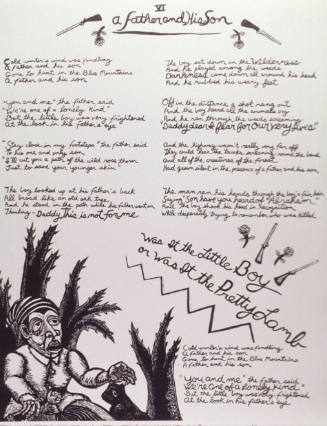 VI
A Father and His Son
Cold winter's wind was fondling
A father and his son
Gone to hunt in the Blue Mountains
A father and his son
"you and me" the father said
"We're one of a lonely kind"
But the little boy was very frightened
At the look in his father's eye
"Stay close in my footsteps" the father said
to his one and only son
"I'll cut you a path of the wild rose thorn
Just to save your younger skin."
The boy looked up at his father's back
All broad like an old oak tree
And he stood in the path while his father went on
Thinking "Daddy this is not for me
The boy sat down in the Wilderness
And he played among the weeds
Darkness came down all around his head
And he rubbed his weary feet
Off in the distance a shot rang out
And the boy heard all the animals
And he ran through the woods screaming
"Daddy dear I fear for our very lives"
And the highway wasn't really very far off
They could hear the trucks around the bend
and all of the creatures of the forest
Had grown silent in the presence of a father and his son
The man ran his hands through the boy's fair hair
Saying "Son have you heard of Abraham"
And the boy shook his head in
While desperately trying to remember who was killed
Was it the Little Boy
or Was it the Pretty Lamb
Cold winter's wind was fondling
A father and his son
Gone to hunt in the Blue Mountains
A father and his son
"You and me," the father said
"We're one of a lonely kind"
But the little boy was very frightened
At the look in his father's eye